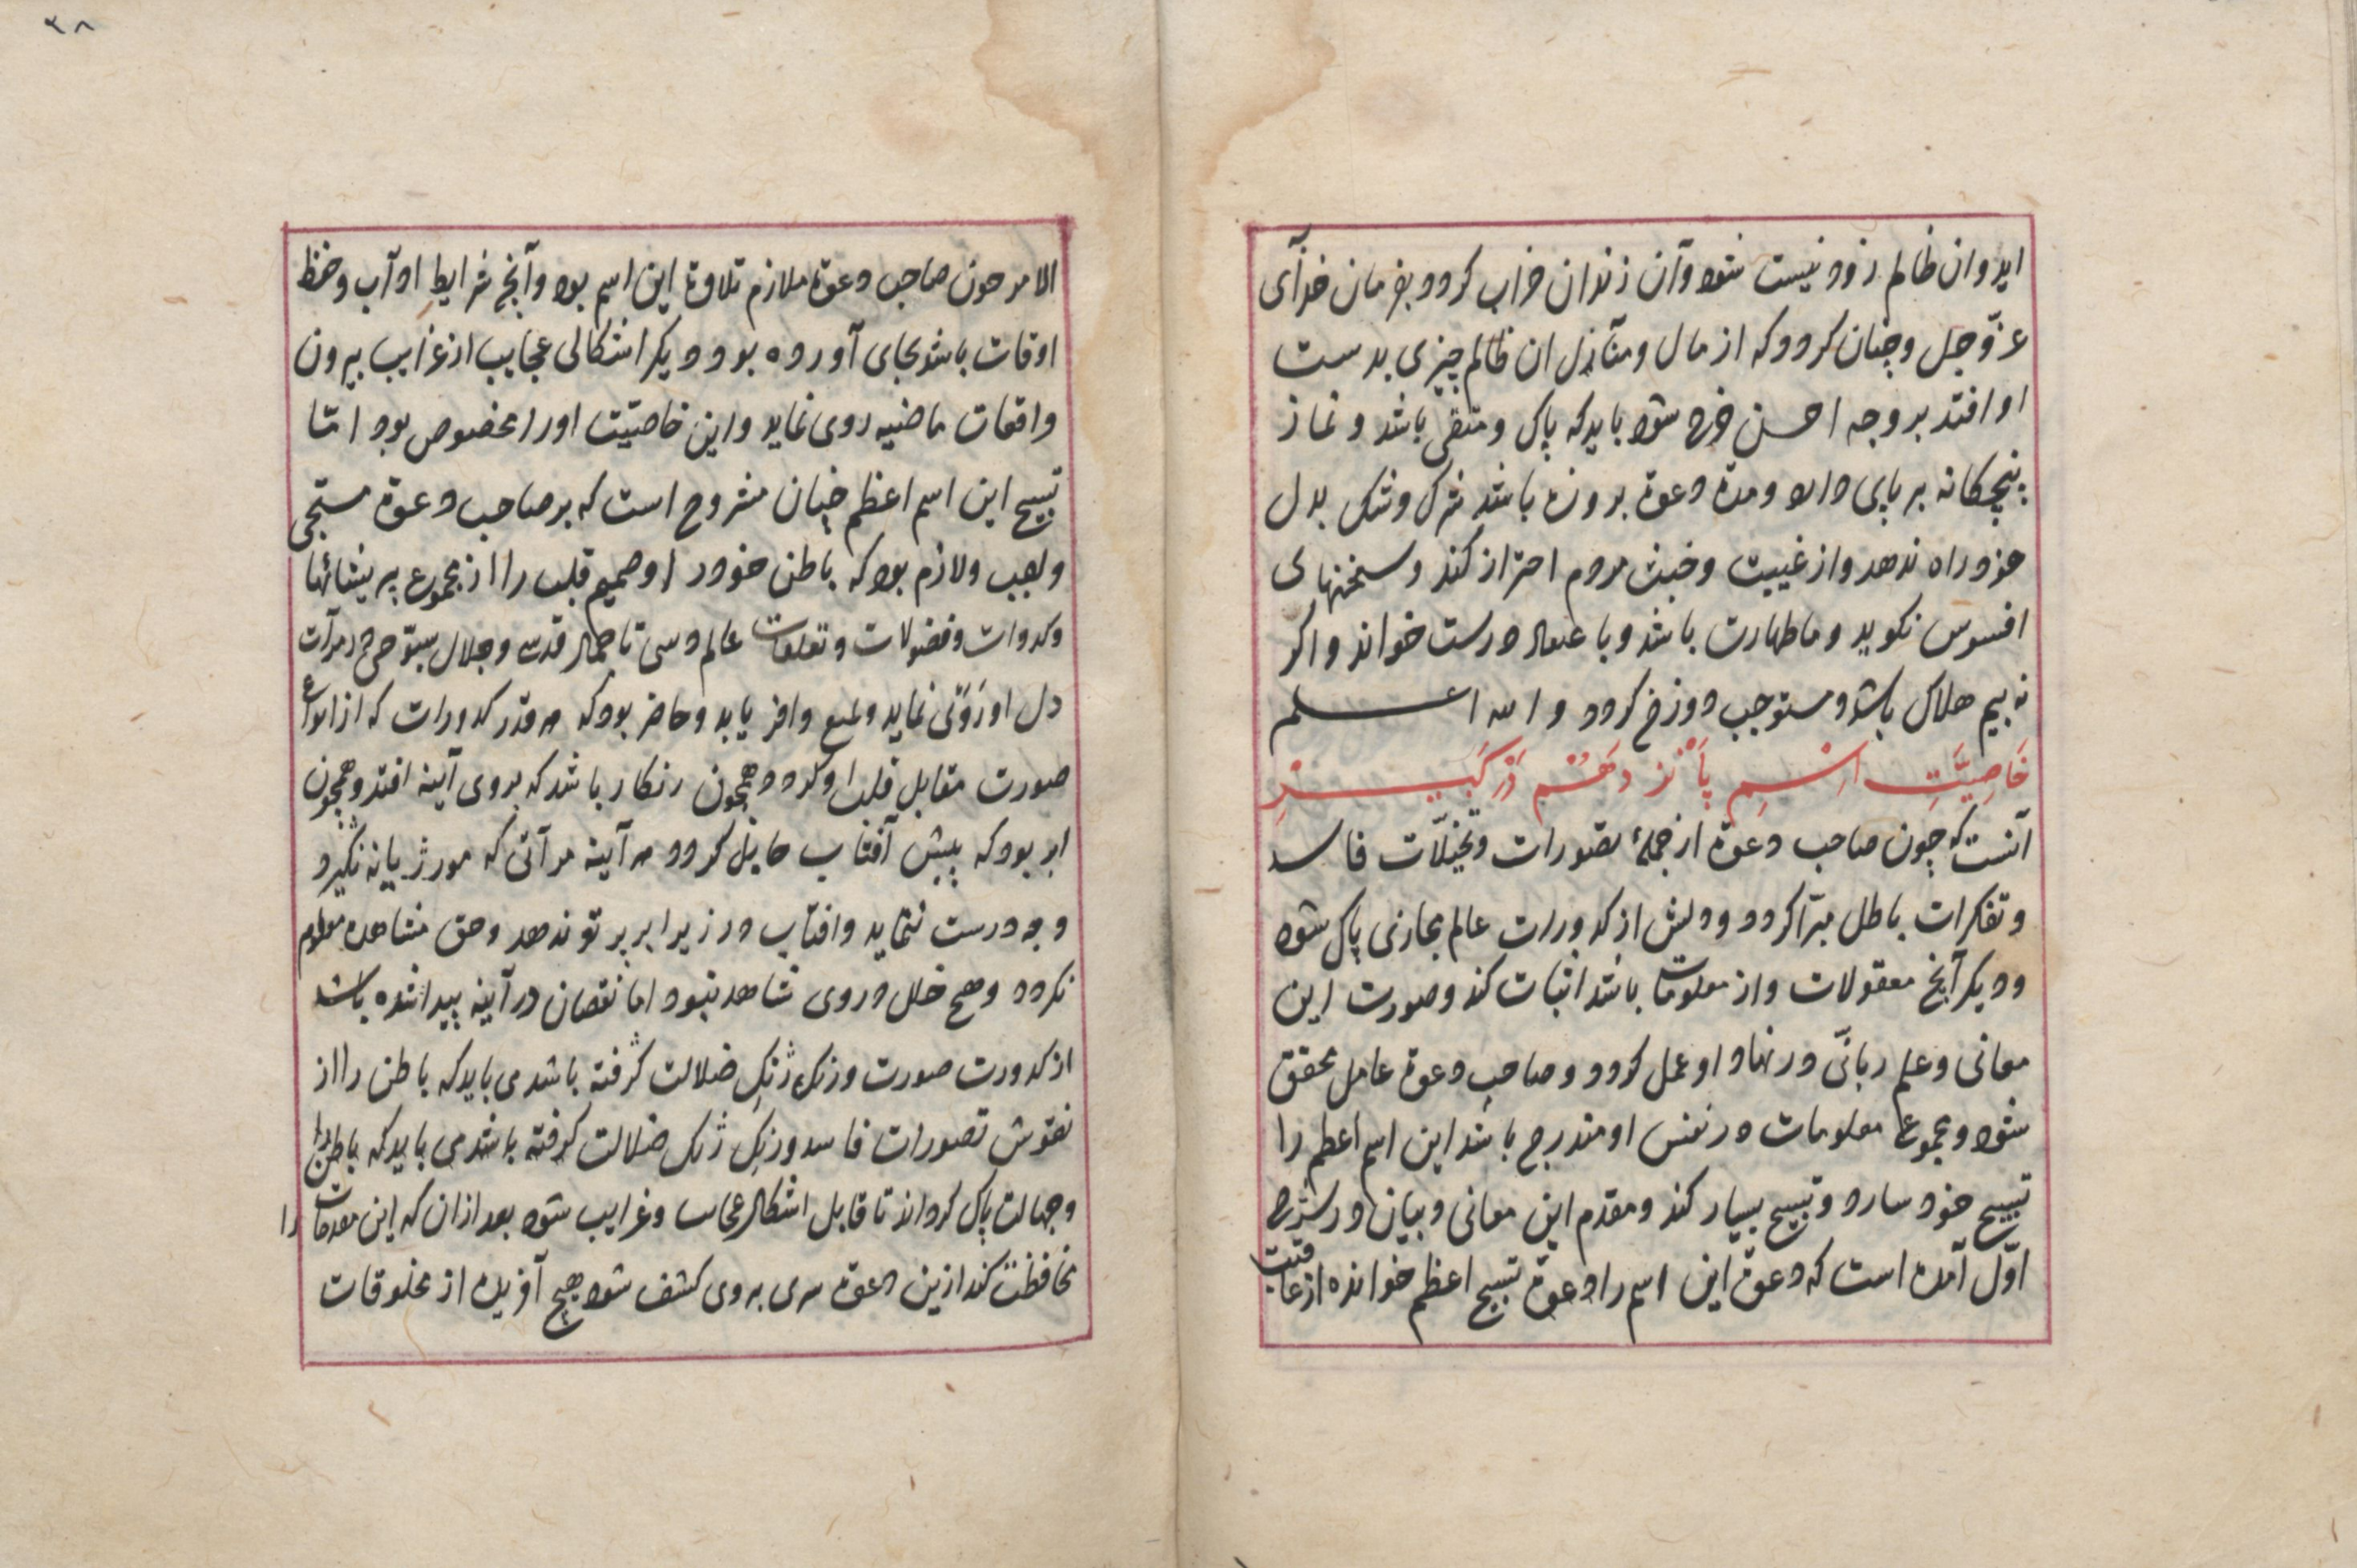 اید وان ظالم زود نیست شود وآن زندان خراب کردد بفرمان خدآی
عزّوجل وچنان کردد که از مال ومنآزل ان ظالم چیزی بدست
او افتد بر وجه احسن خرج شود باید که پاک ومتقی باشد ونماز
پنچکانه بر پای دارد ومدة دعوة بروزه باشد شرک وشک بدل
خود راه ندهد واز غیبت وخبث مردم احتراز کند وسخنهای
افسوس نکوید وباطهارت باشد وبا درست خواند واکر
نه بیم هلاک باشد ومستوجب دوزخ کردد والله اعلم
خَاصِیَّتِ اسْمِ پَانْزدَهُم دَرْ
آنست که چون صاحب دعوة از جملۀ تصورات وتخیلّات فاسد
وتفکرات باطل مبرّا کردد ودلش از کدورات عالم مجازی پاک شود
ودیکر آنچ معقولات واز معلومات باشد اثبات کند وصورت این
معانی وعلم ربانّی در نهاد او عمل کردد وصاحب دعوة عامل محقق
شود ومجموع معلومات در نفس او مندرج باشد این اسم اعظم را
تسبیح خود سازد وتسبیح بسیار کند ومقدم این معانی وبیان در شرح
اوّل آمده است که دعوة این اسم را دعوة تسبیح اعظم خوانده از عاقبت
۳۸
الامر چون صاحب دعوة ملازم تلاوة این اسم بود وآنچ شرایط اداب وحفظ
اوقات باشد بجای آورده بود ودیکر اشکالی عجایب از غرایب بیرون
واقعات ماضیه روی نماید واین خاصیّت اورا مخصوص بود امّا
تسبیح این اسم اعظم چنان مشروح است که بر صاحب دعوة مستحق
وواجب ولازم بود که باطن خود را وصمیم قلب را از مجموع پریشانیها
وکدورات وفضولات وتعلقات عالم تا جمال قدسی وجلال سبّوحی در مرآت
دل او روی نماید ولمع وافر یابد وحاضر بود که هر قدر کدورات که از انواع
صورت مقابل قلب او کردد همچون زنکار باشد که بروی آینه افتد وهمچون
ابر بود که پیش آفتاب حایل کردد هر آینه مرآتی که مورژیانه نگیرد
وجه درست ننماید وافتاب در زیر ابر پرتو ندهد وحق مشاهده معلوم
نکردد وهیچ خلل در روی شاهد نبود اما نقصان در آینه پیدا شده باشد
از کدورت صورت وزنک ژنکِ ضلالت کرفته باشد می باید که باطن را از
نقوش تصورات فاسد وزنک ژنک ضلالت کرفته باشد می باید که باطن را
وجهالت پاک کرداند تا قابل اشکال عجایب وغرایب شود بعد ازان که این مقدمات را
محافظت کند ازین دعوة سری بروی کشف شود هیچ آفریده از مخلوقات